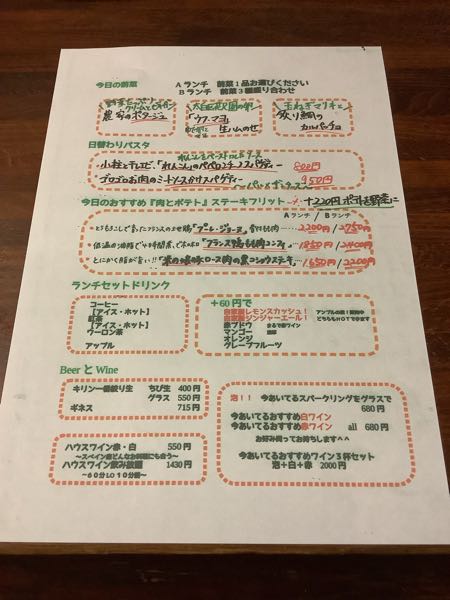 今日の前菜 Aランチ 前菜1品お選びください
Bランチ 前菜3種盛り合わせ
農家のポタージュ
「ウフ・マヨ」
生ハムのせ
玉ねぎマリネと
炙り鯛の
カルパッチョ
日替わりパスタ
小柱とチレビ、「れんこん」のペペロンチーノスパゲティー 800円
ゴロゴロお肉のミートソースがけスパゲティー 950円
今日のおすすめ『肉とポテト』ステーキフリット +220円 ポテトを野菜に
Aランチ / Bランチ
2200円/2750円
低温の油脂で 「フランス鴨もも肉コンフィ」 1850円/2400円
とにかく脂が旨い!! ロース肉の黒コショウステーキ 1650円/2200円
ランチセットドリンク
コーヒー
【アイス・ホット】
紅茶
【アイス・ホット】
ウーロン茶
アップル
+60円で
自家製レモンスカッシュ!
自家製ジンジャーエール! どちらもHOTできます
赤ブドウ まるで赤ワイン
マンゴー
オレンジ
グレープフルーツ
Beer と Wine
キリン一番絞り生 ちび生 400円
グラス 550円
ギネス 715円
泡!! 今あいてるスパークリングをグラスで
680円
今あいてるおすすめ白ワイン
今あいてるおすすめ赤ワイン all 680円
お好み伺ってお持ちします^^
ハウスワイン赤・白 550円
~スペイン産どんなお料理にも合う~
ハウスワイン飲み放題 1430円
~60分LO10分前~
今あいてるおすすめワイン3杯セット
泡+白+赤 2000円